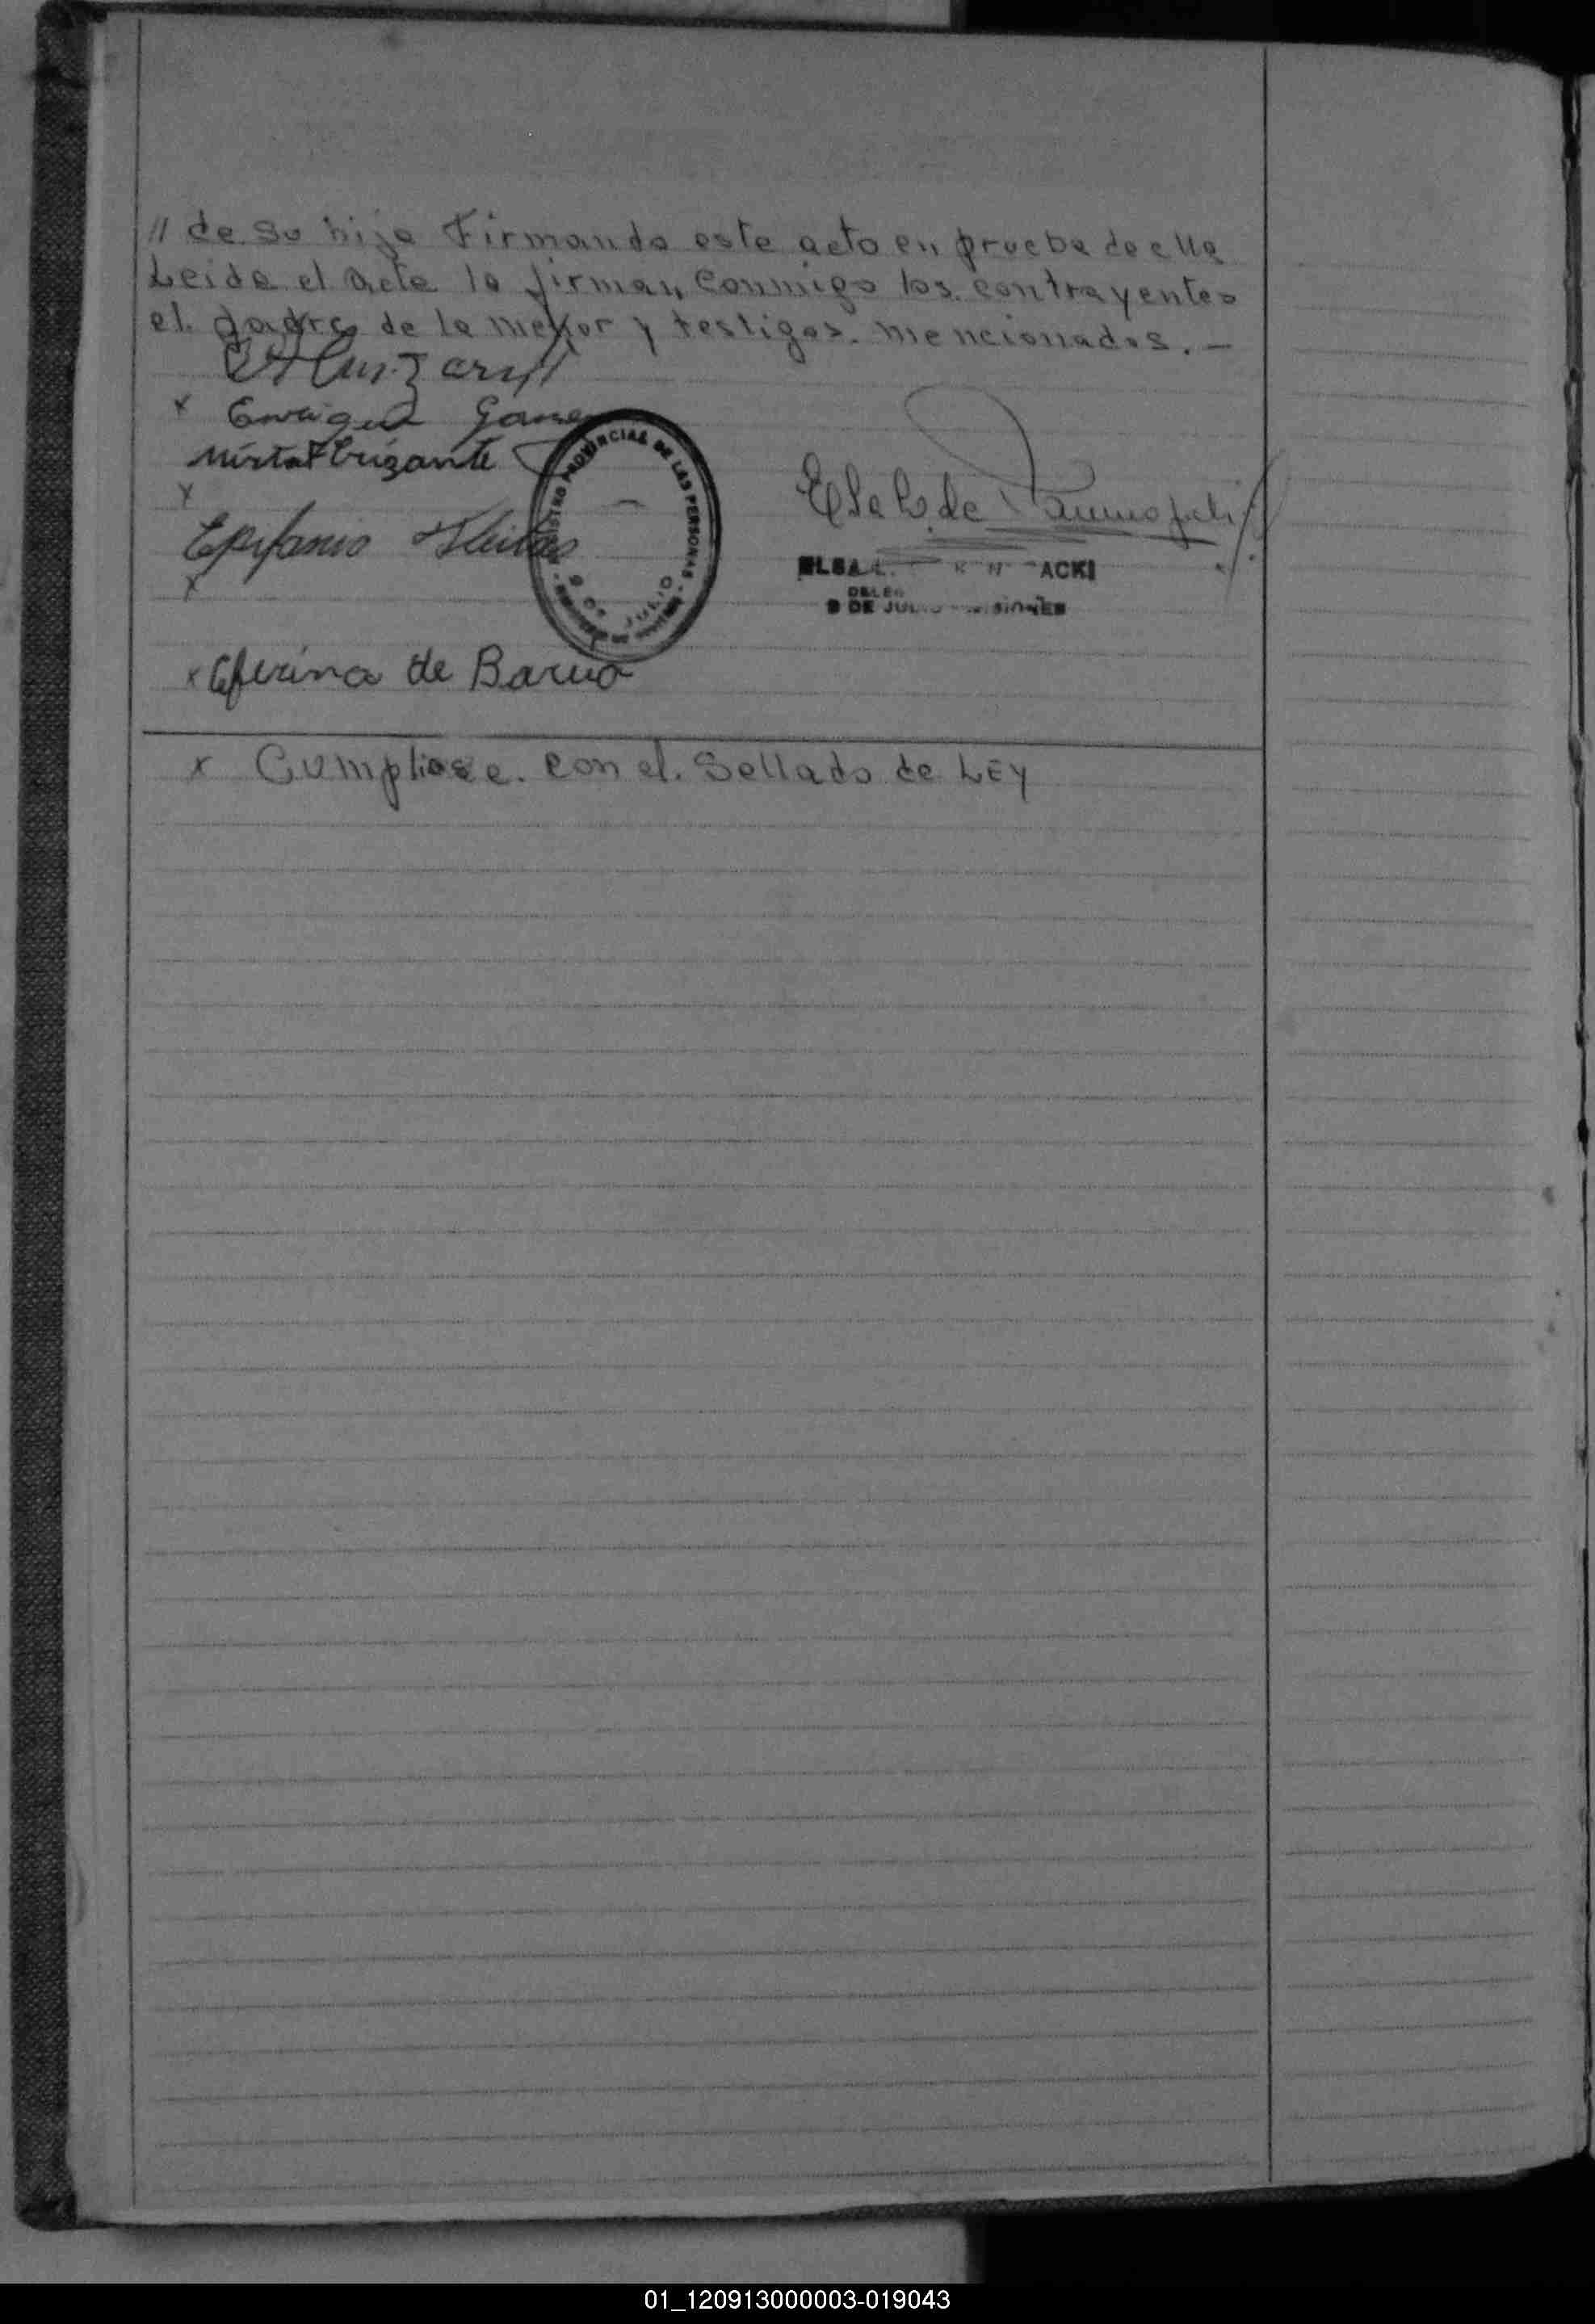 // de su hija Firmando este acto en prueba de ella
Leida el acta la firman conmigo los contrayentes
el padre de la menor y testigos. mencionados. —
x Enrique
Mirta Brizante
x
Epifanio Fleitas
x
x Ceferina de Barrio
REGISTRO PROVINCIAL DE LAS PERSONAS
9 DE JULIO
Elsa L. de
ELSA L. ACKI
DELEG
9 DE JULIO - MISIONES
x Cumpliose. con el. Sellado de LEY
01_120913000003-019043